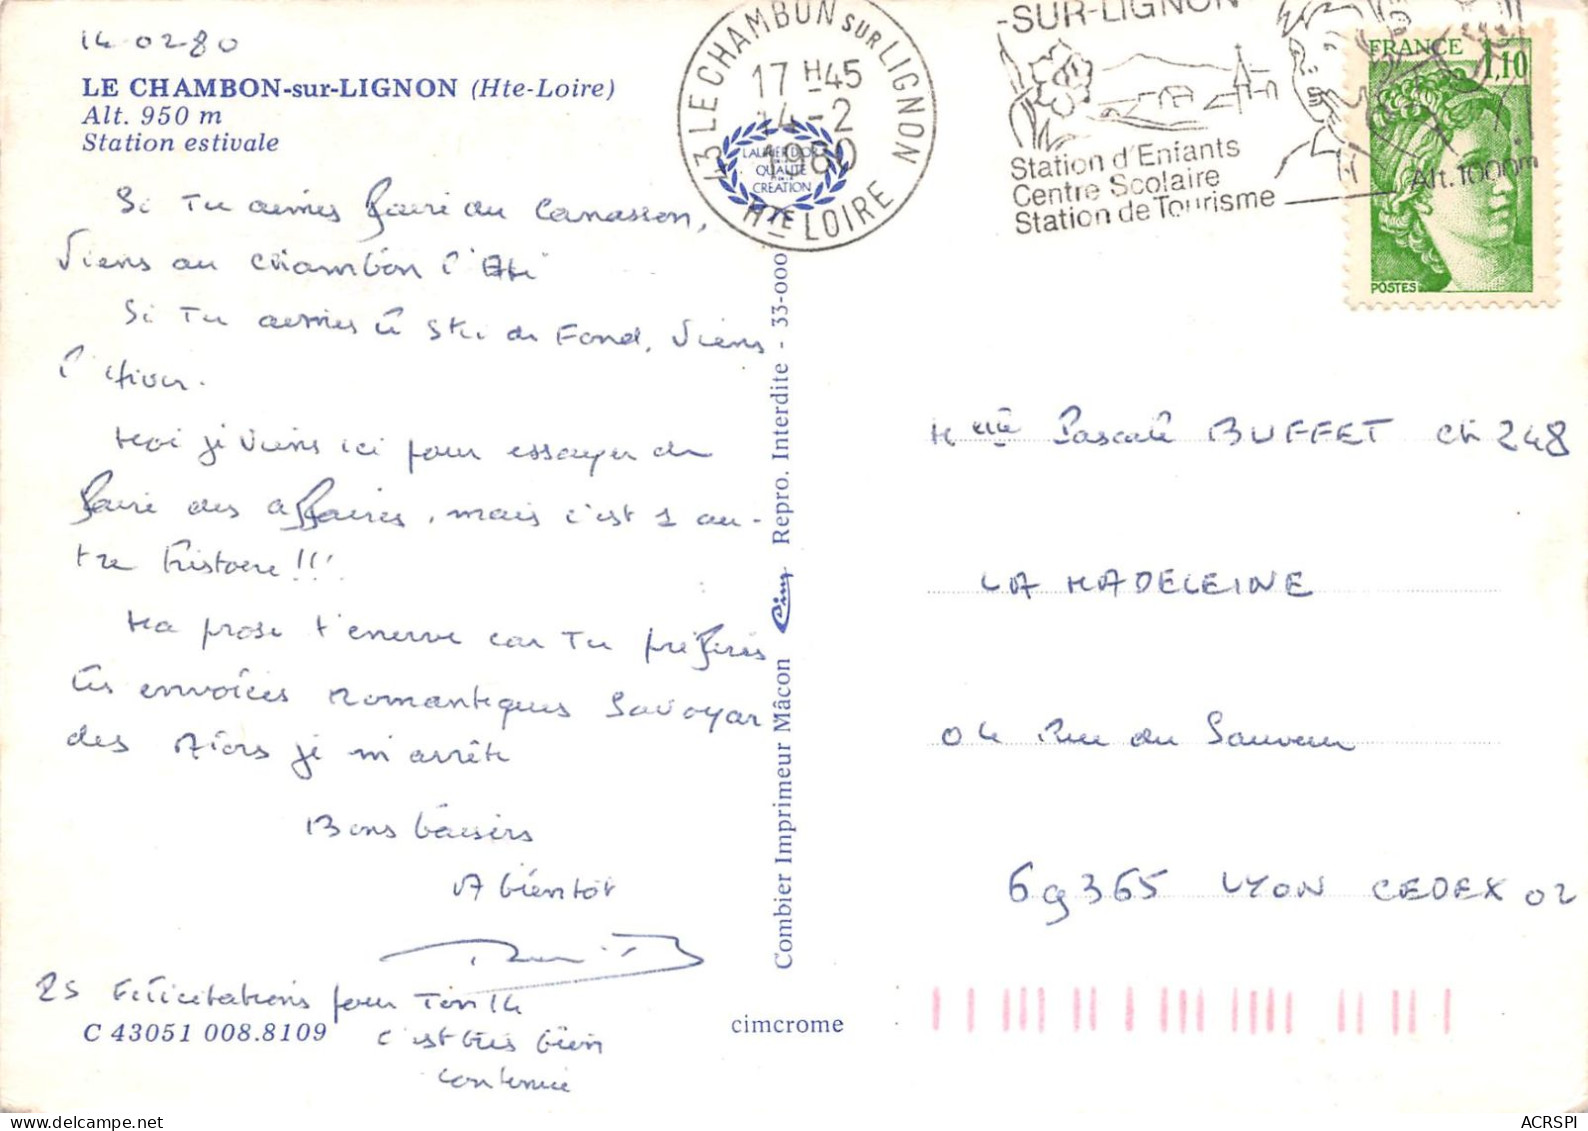 14 02 80
LE CHAMBON-sur-LIGNON (Hte-Loire)
Alt. 950 m
Station estivale
Si Tu aimes faire du Canasson,
Viens au Chambon l'Eté
Si Tu aimes le Ski de Fond, Viens
l'Hiver.
Moi je viens ici pour essayer de
faire des affaires, mais c'est 1 au-
tre histoire!!!
Ma prose t'enerve car Tu préfères
les envolées romantiques Savoyar
des Alors je m'arrête
Bons baisers
A bientôt
PS Félicitations pour Ton 14
c'est très bien
continue
C 43051 008.8109
cimcrome
Combier Imprimeur Mâcon Cim Repro. Interdite - 33-000
43 LE CHAMBON SUR LIGNON
17 H 45
14 - 2
1980
HTE LOIRE
LAURIER D'OR
QUALITÉ
CREATION
-SUR-LIGNON
Station d'Enfants
Centre Scolaire
Station de Tourisme
Alt. 1000m
FRANCE 1,10
POSTES
Melle Pascale BUFFET Ch 248
LA MADELEINE
04 Rue du Sauveur
69365 LYON CEDEX 02
ACRSPI